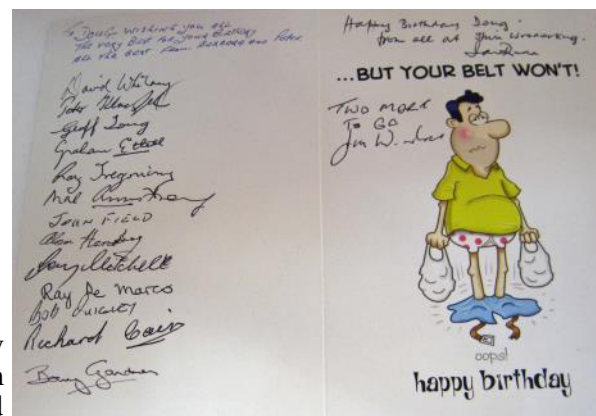 To Doug wishing you all
the very best for your Birthday
All the best from Barbara and Peter
David
Peter
Geoff Long
Graham
Ray Tregoning
Mal Armstrong
JOHN FIELD
Alan
Mitchell
Ray De Marco
BOB QUIGLEY
Richard Cairo
Barry Gardner
Happy Birthday Doug.
from all at
...BUT YOUR BELT WON'T!
TWO MORE
TO GO
Jim
oops!
happy birthday